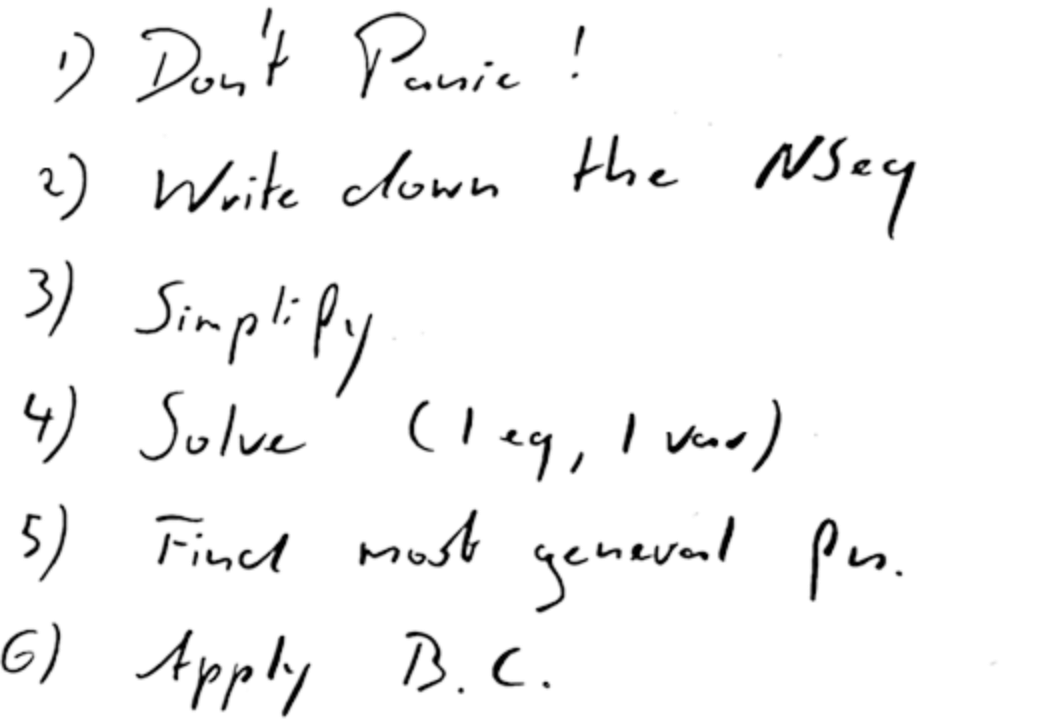 1) Don't Panic!
2) Write down the NSeq
3) Simplify
4) Solve (1 eq, 1 var)
5) Find most general fn.
6) Apply B.C.